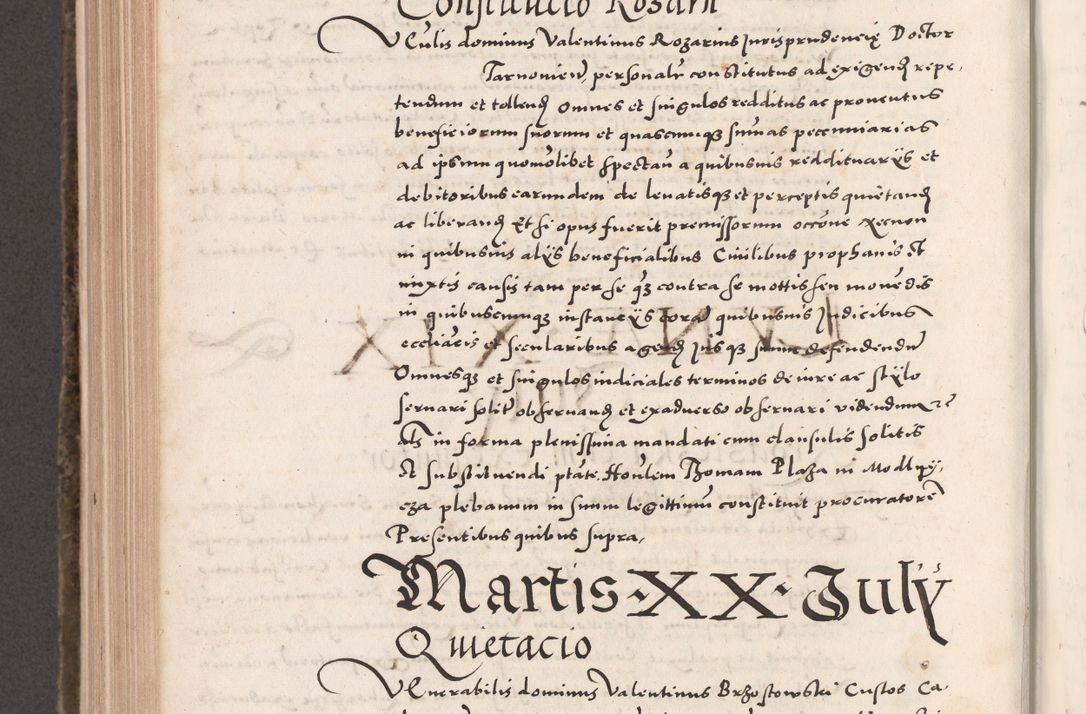 Constitucio Rosarii
VCulis dominus Valentinus Rozarius Jurisprudencię Doctor
Tarnovien, personalr constitutus ad exigend repe-
tendum et tollend Omnes et singulos redditus ac proventus
beneficiorum suorum et quascumqz sumas pecunniarias
ad ipsum quomolibet spectan a quibusvis reddituariis et
debitoribus earumdem de levatisqz et perceptis quietand
ac liberand Et si opus fuerit premissorum occone Necnon
in quibusvis aliis beneficialibus Civilibus prophanis Et
mixtis causis tam per se qz contra se mottis seu movedis
in quibuscumqz instanciis cora quibusvis Judicibus
eccliacis et secularibus agend Jusqz suum defendendu
Omnesqz et singulos iudiciales terminos de iure ac stilo
servari solit observand et ex adverso observari videndum
als in forma plenissima mandati cum clausulis solitis
Et substituendi ptate Honlem Thomam Plaza in Modlny-
cza plebanum in suum legittimu constituit procuratore
Presentibus quibus supra,
Martis · XX · Julii
Quietacio
VEnerabilis dominus Valentinus Brzostowski Custos Ca-